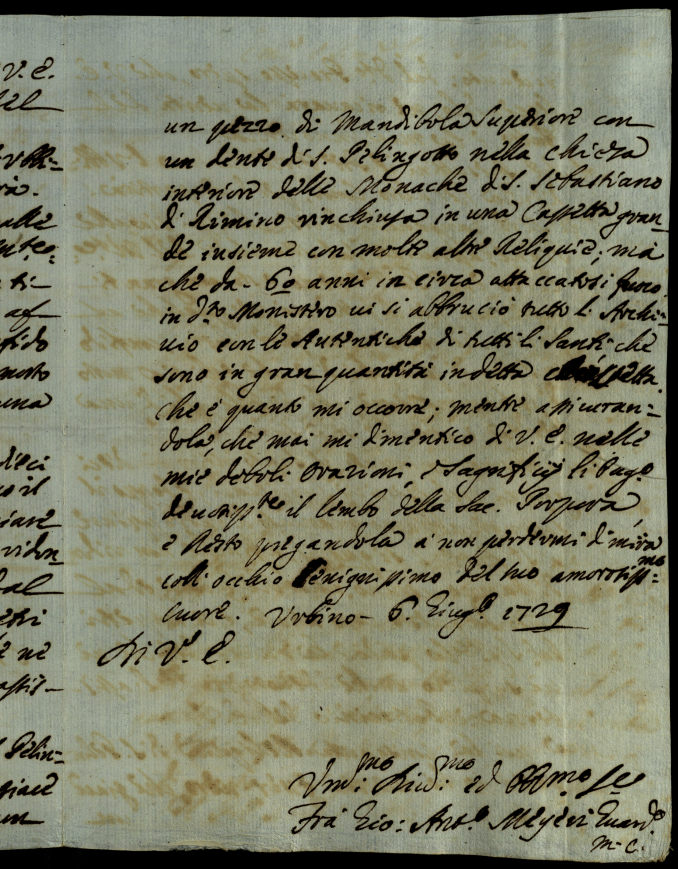 V. E.
un pezzo di Mandibola Superiore con
un dente di S. Pelingotto nella chiesa
interiore delle Monache di S. Sebastiano
di Rimino rinchiusa in una Cassetta gran=
de insieme con molte altre Reliquie; ma
che da - 60 anni in circa attaccatosi fuoco
in d.to Monistero vi si abbruciò tutto l' Archi=
vio con le Autentiche di tutti li Santi che
sono in gran quantità in detta
che è quanto mi occorre; mentre assicuran=
dola, che mai mi dimentico di V. E. nelle
mie deboli Orazioni, e Sagrificij li bago
il lembo della Sac. Porpora
e Resto pregandola a non perdermi di mira
coll occhio benignissimo del suo amorosiss.mo
Cuore. Urbino - 6. Giug.o 1729
Di V.a E.
Um.mo Div.mo ed Obb.mo Se
Fra Gio: Ant.o Meyeri Guard.o
M. C.
dieci
una
Pelin=